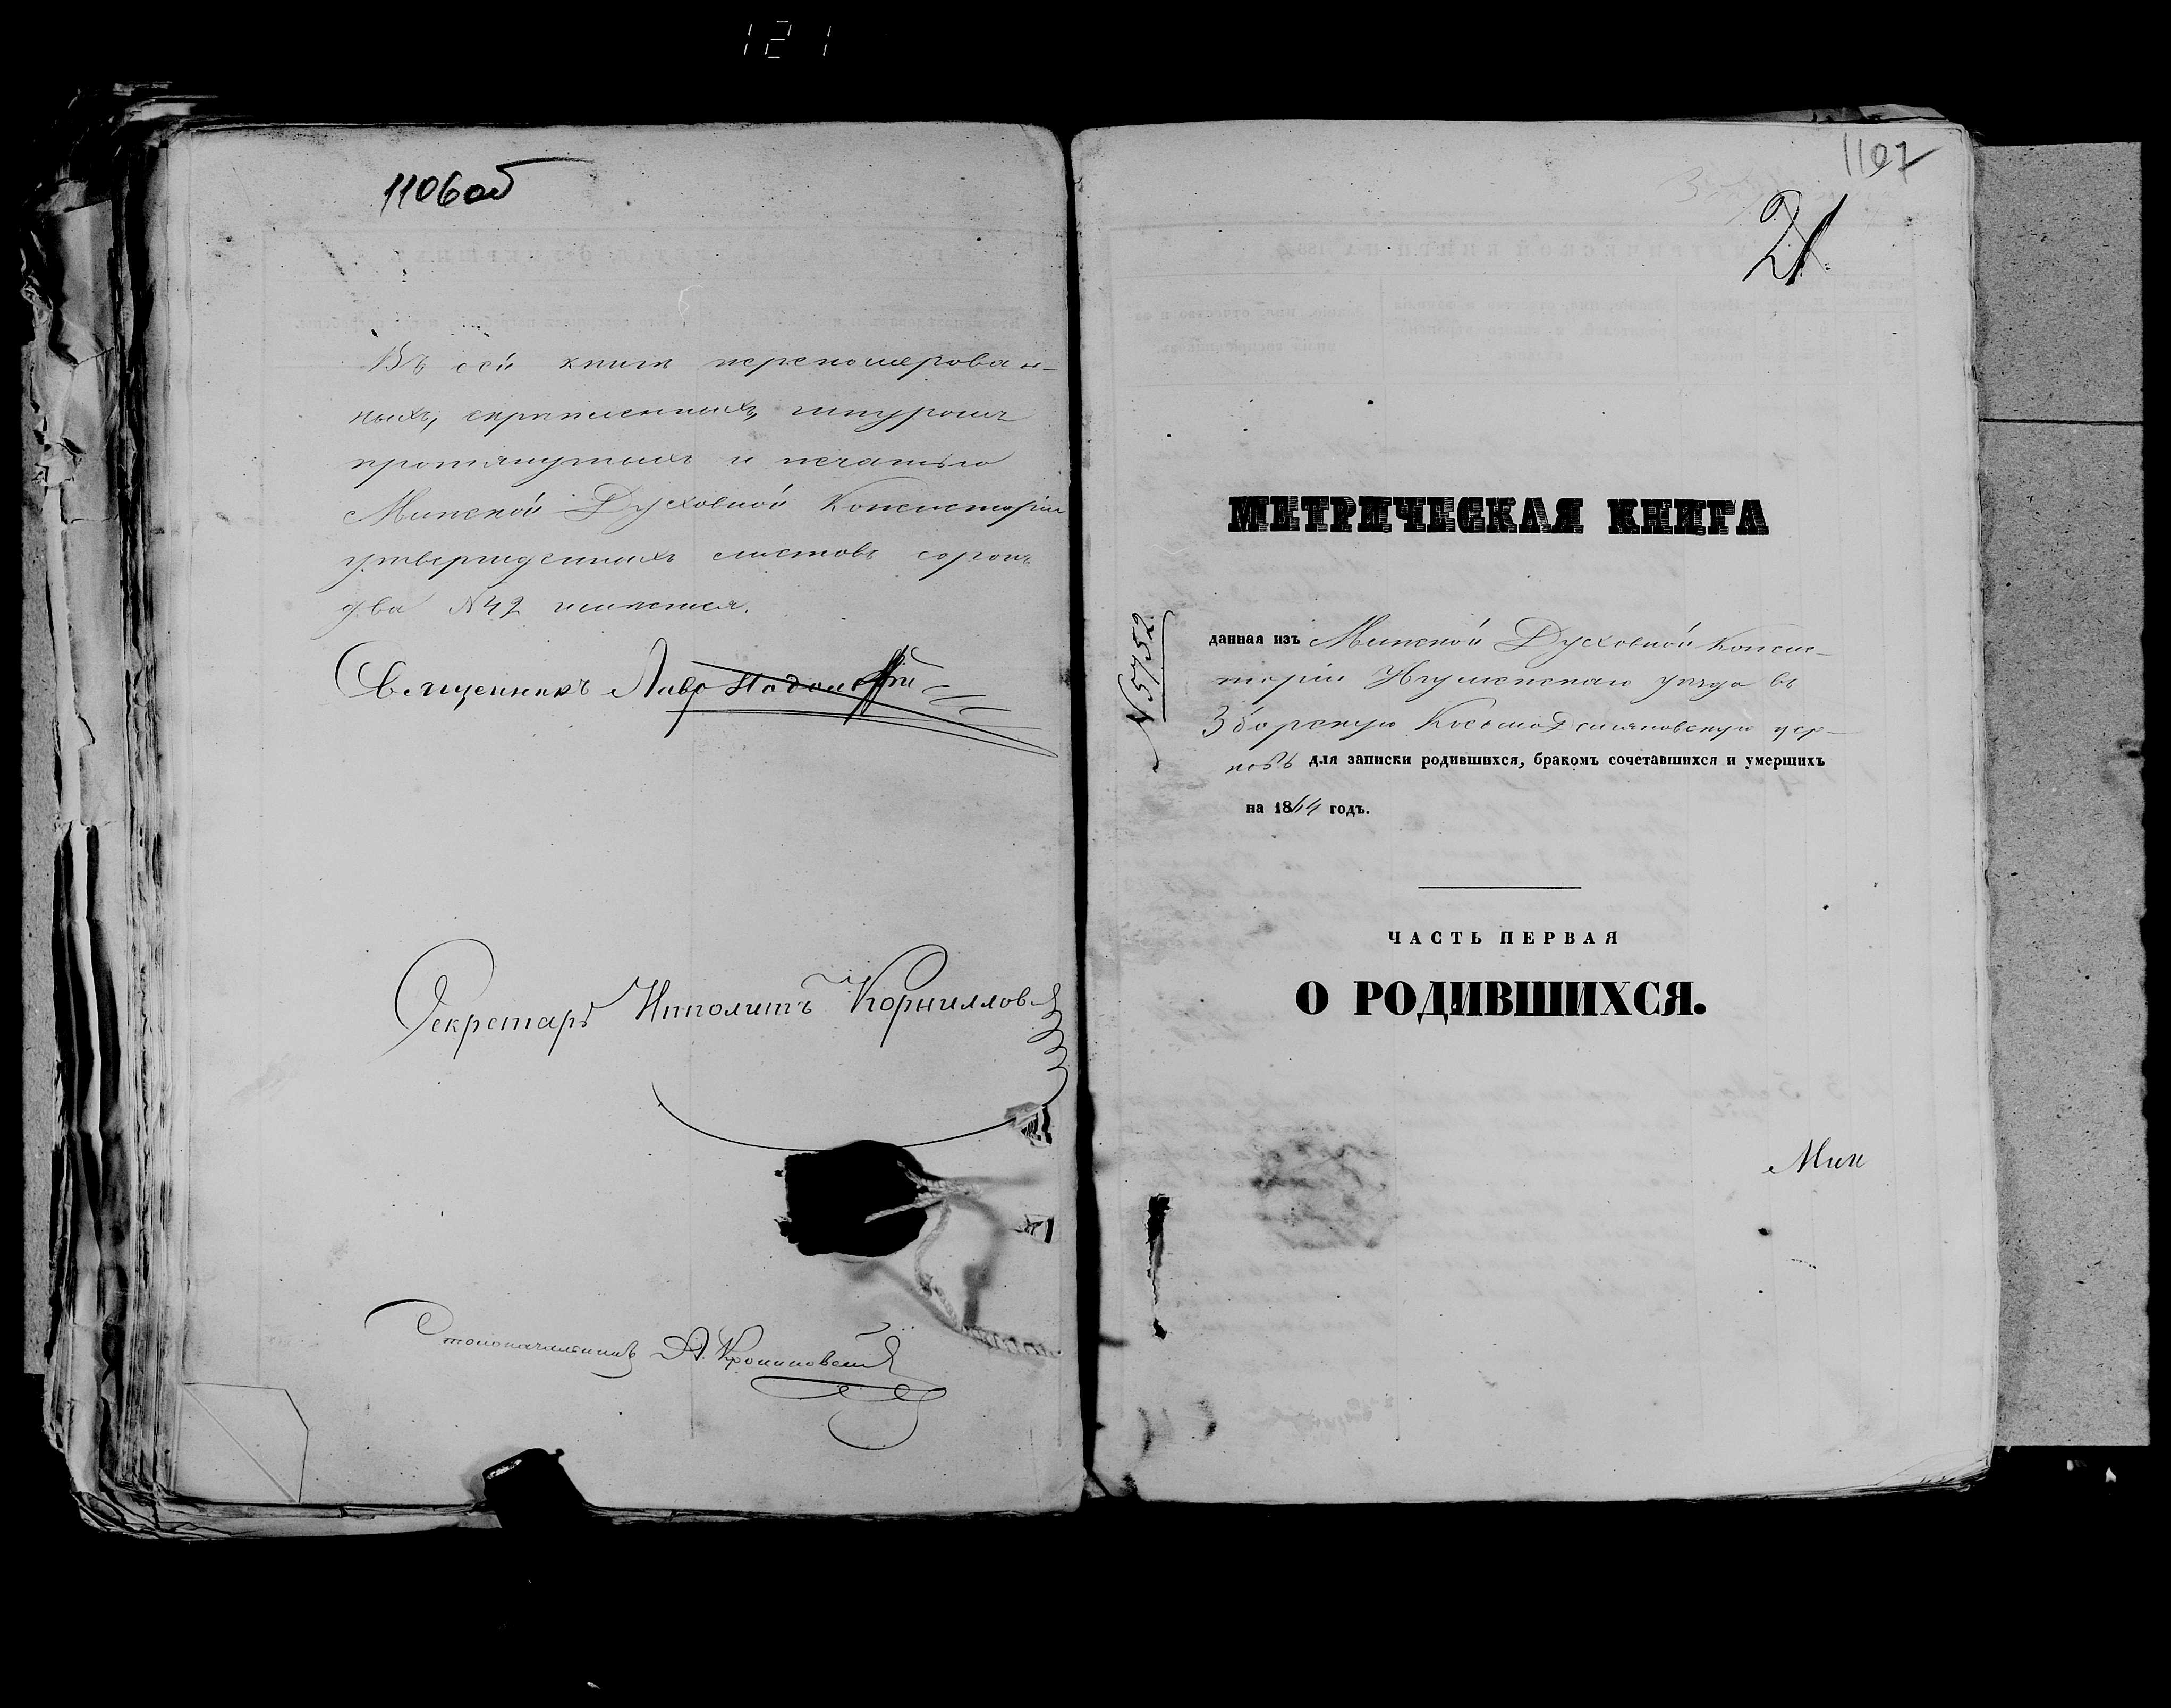 121
1106об
Въ сей книгѣ перенумерован-
ныхъ, скрѣпленныхъ, шнуромъ
протянутыхъ и печатью
Минской Духовной Консисторіи
утвержденныхъ листовъ сорокъ
два №42 имѣется.
Священникъ
Секретарь Ипполитъ Корниллов
Столоначальникъ А.
1107
21
МЕТРИЧЕСКАЯ КНИГА
№5752
данная изъ Минской Духовной Консис-
торіи Игуменскаго уѣзда въ
Зборскую Косьмо Деміановскую цер-
ковь для записки родившихся, бракомъ сочетавшихся и умершихъ
на 1864 годъ.
ЧАСТЬ ПЕРВАЯ
О РОДИВШИХСЯ.
Мин